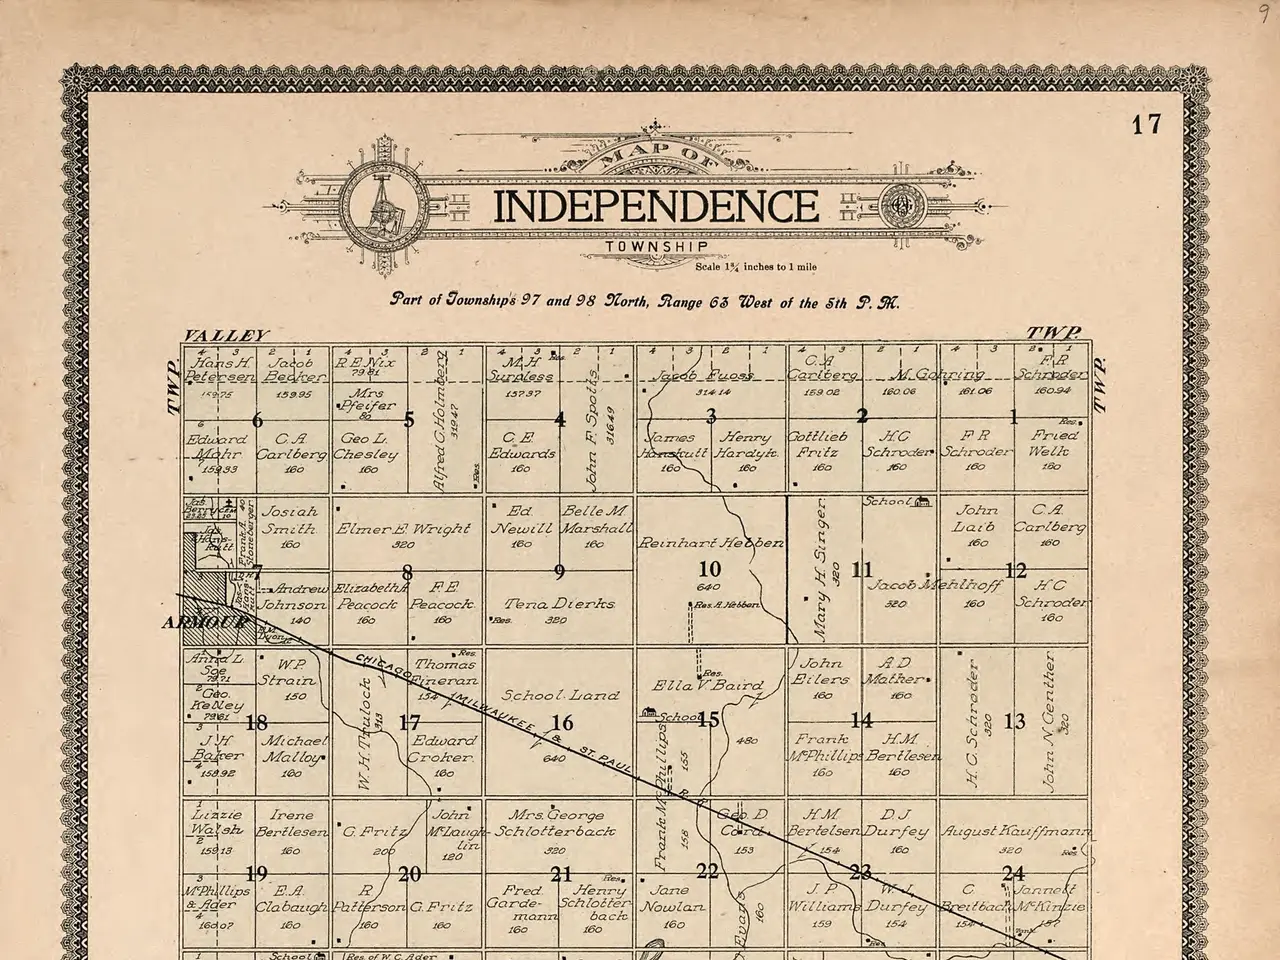 9
17
MAP OF
INDEPENDENCE
TOWNSHIP
Scale 1¾ inches to 1 mile
Part of Township's 97 and 98 North, Range 63 West of the 5th P. M.
VALLEY TWP.
TWP. TWP.
4 3 2 1 4 3 2 1 4 3 2 1 4 3 2 1 4 3 2 1 4 3 2 1
Hans H. Petersen 159.75
Jacob Becker 159.95
R E Nix 79.81
Mrs Pfeifer 80
Alfred C. Holmberg 319.47
M. H Surpless 157.97 Res.
John F. Spotts 316.49
Jacob Fuoss 314.14
C. A Carlberg 159.02
M. Gohring 160.06 161.06
F. R Schroder 160.94
6 5 4 3 2 1
Edward Mohr 159.33
C. A. Carlberg 160
Geo L. Chesley 160
Res.
C. E. Edwards 160
James Hanskutt 160
Henry Hardyk. 160
Gottlieb Fritz 160
H. C Schroder 160
F R Schroder 160
Fried Welk 160 Res.
Frank A. Stoneberger 40
Josiah Smith 160
Elmer E Wright 320
Ed. Newill 160
Belle M Marshall 160
Reinhart Hebben 640
Mary H. Singer 320
School
John Laib 160
C. A. Carlberg 160
7 8 9 10 11 12
Andrew Johnson 140
Elizabeth A Peacock 160
F. E. Peacock 160
Tena Dierks 320 Res.
Res. A. Hebben
Jacob Mehlhoff 320 160
H C Schroder 160
ARMOUR
Anna L Soe 79.71
W. P. Strain 150
CHICAGO MILWAUKEE & ST. PAUL R. R.
Thomas Fineran 154 Res.
School Land 640
Ella V Baird 480 Res.
School
John Eilers 160
A D Mather 160
H. C. Schroder 320
John N. Genther 320
Geo. Kelley 79.81
18 17 16 15 14 13
J. H Baker 159.92
Michael Malloy 160
W. H. Trulock 313
Edward Croker. 160
Frank McPhillips 155 158
Frank McPhillips 160
H. M. Bertlesen 160
Lizzie Walsh 159.13
Irene Bertlesen 160
C. Fritz 200
John McLaughlin 120
Mrs. George Schlotterback 320
Geo D. Cord 153
H. M. Bertelsen 154
D. J Durfey 160
August Kauffmann 320 Res.
19 20 21 22 23 24
McPhillips & Ader 160.07
E. A. Clabaugh 160
R Patterson 160
C. Fritz 160
Fred. Gardemann 160
Henry Schlotterback 160 Res.
Jane Nowlan 160
Evans 160
J. P Williams 159
W. J. Durfey 154 Res.
C Breitbach 154
Jannett McKinzie 157
School
Res. of W. C. Ader